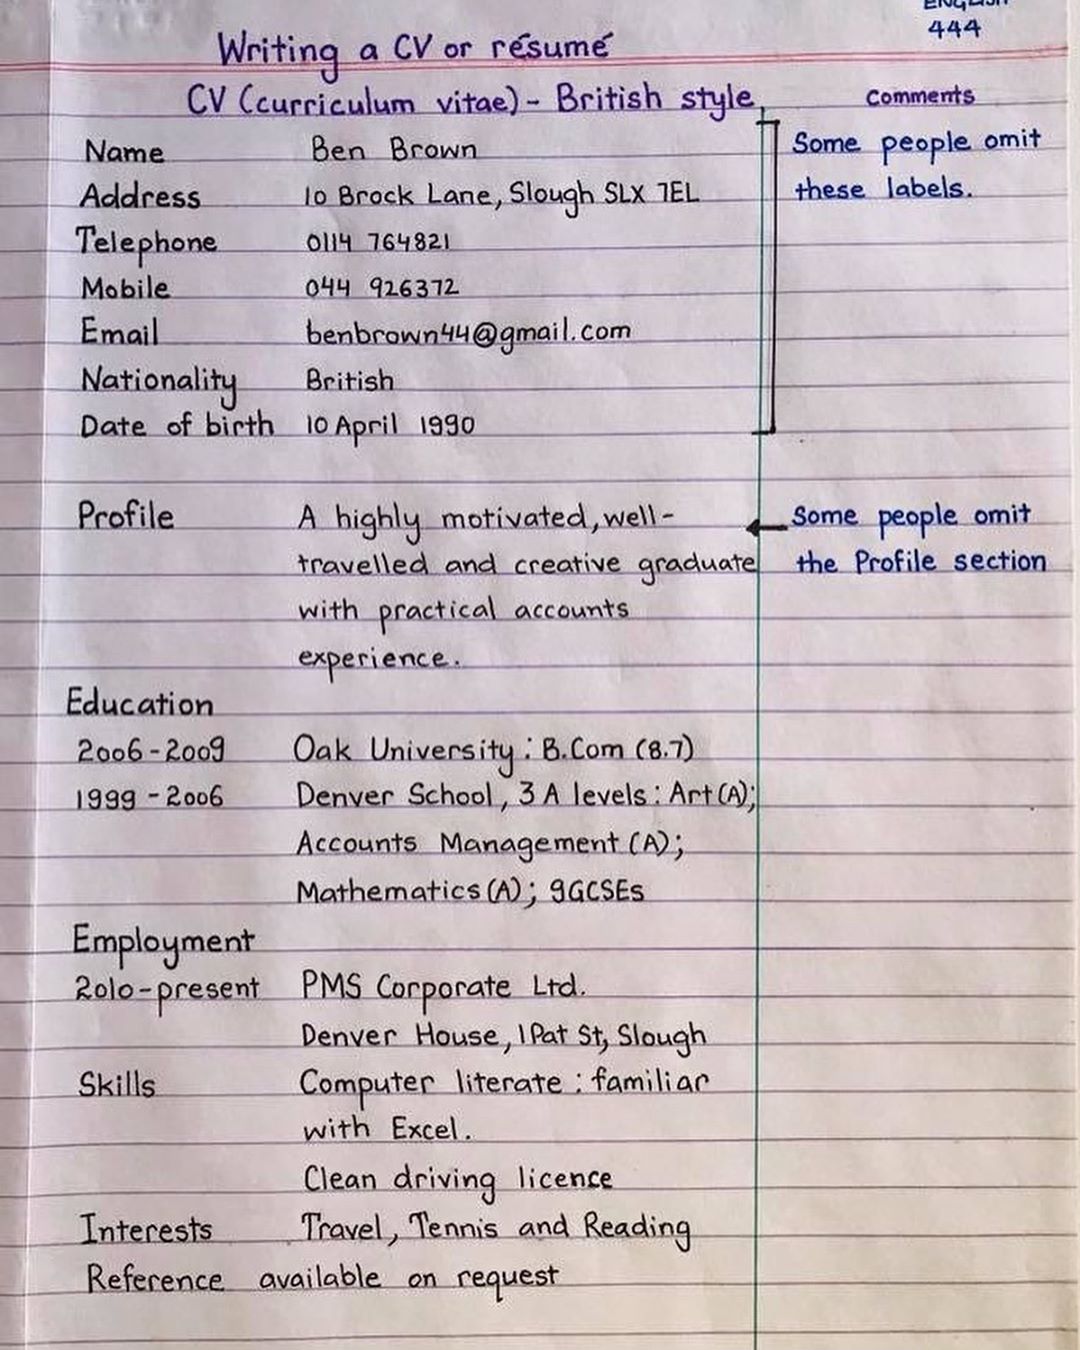 ENGLISH
444
Writing a CV or résumé
CV (curriculum vitae) - British style
Comments
Name Ben Brown
Some people omit
Address 10 Brock Lane, Slough SLX 7EL
these labels.
Telephone 0114 764821
Mobile 044 926372
Email benbrown44@gmail.com
Nationality British
Date of birth 10 April 1990
Profile A highly motivated, well-
Some people omit
travelled and creative graduate
the Profile section
with practical accounts
experience.
Education
2006-2009 Oak University : B.Com (8.7)
1999 - 2006 Denver School, 3 A levels : Art (A);
Accounts Management (A);
Mathematics (A); 9GCSEs
Employment
2010-present PMS Corporate Ltd.
Denver House, 1 Pat St, Slough
Skills Computer literate : familiar
with Excel.
Clean driving licence
Interests Travel, Tennis and Reading
Reference available on request